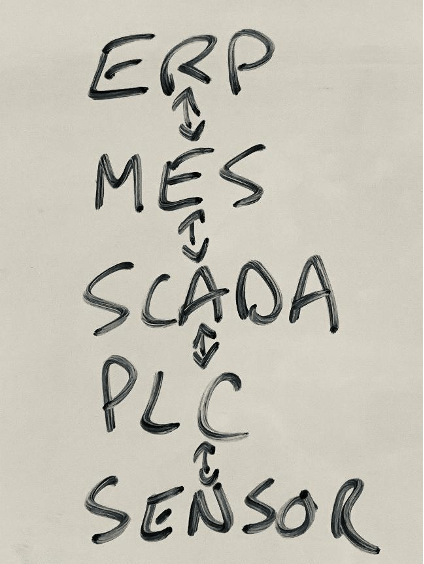 ERP
MES
SCADA
PLC
SENSOR